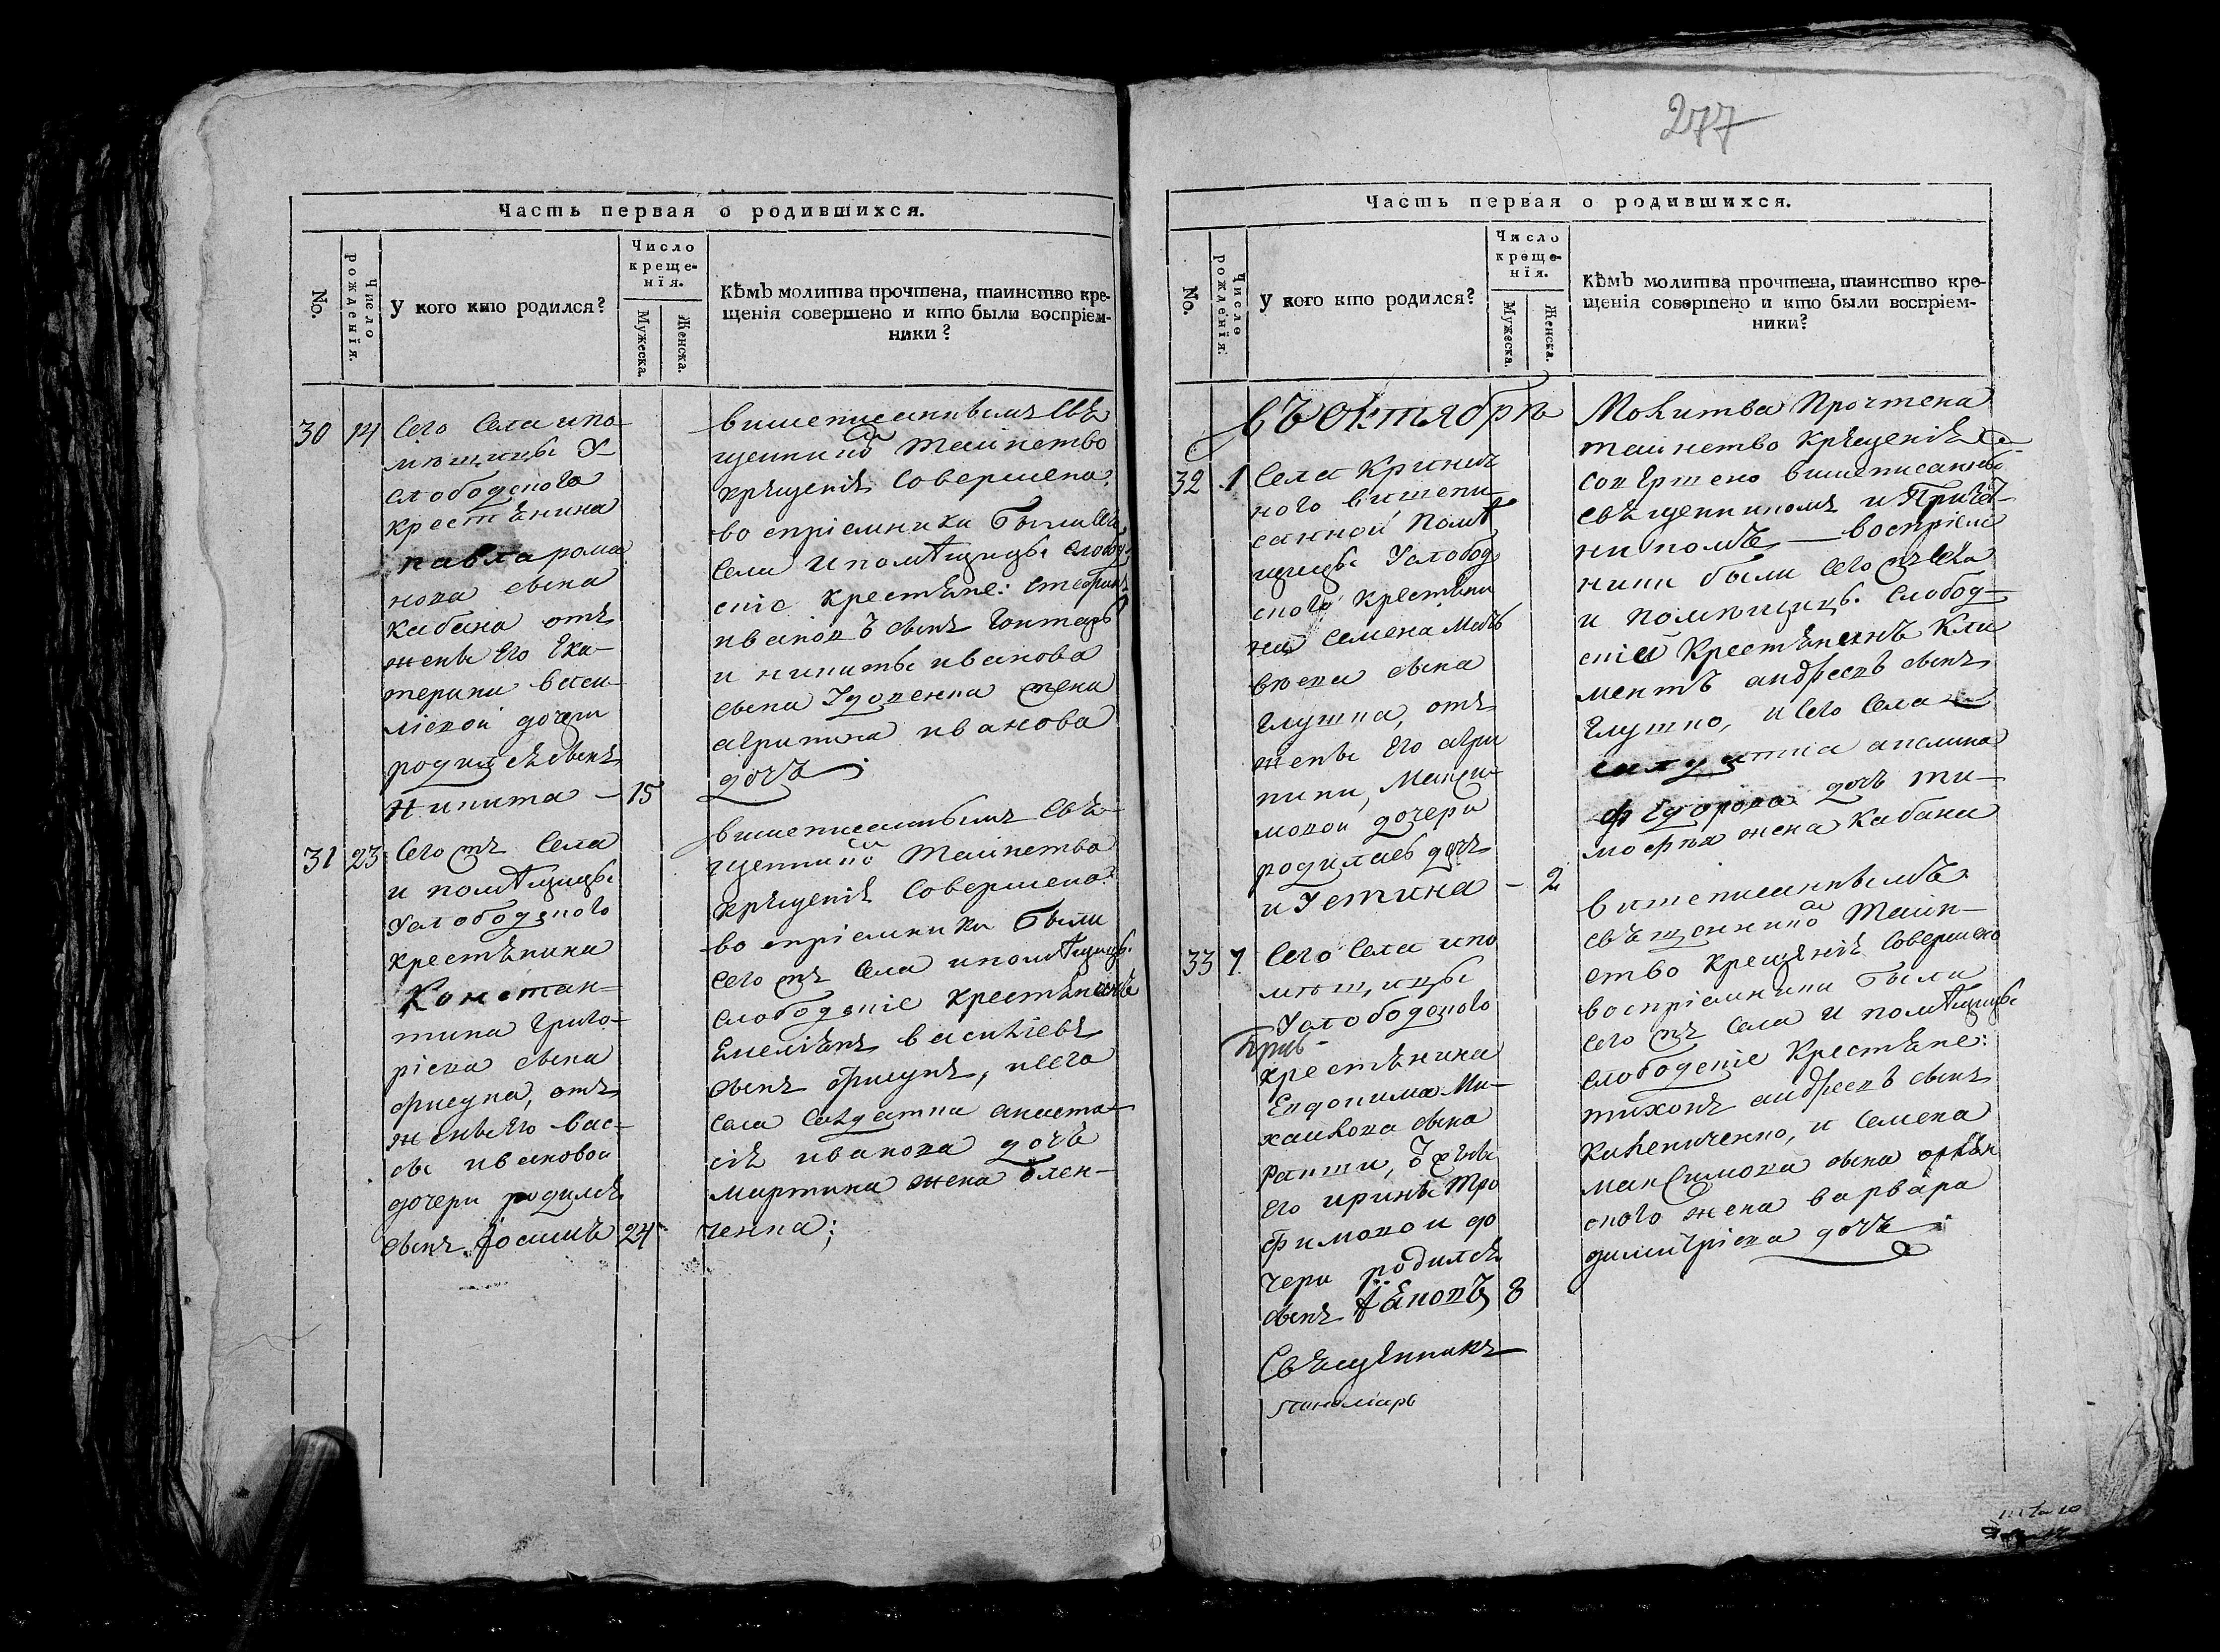 Часть первая о родившихся.
No.
Число рожденїя.
У кого кто родился?
Число
креще-
нїя.
Мужеска.
Женска.
Кѣмъ молитва прочтена, таинство кре-
щенія совершено и кто были воспріем-
ники?
30 14 Сего Села и по-
мѣщицы У
слободского
крестѣнина
павла рома
нова сына
Кабана отъ
жены Его Ека-
терини васи-
ліевой дочери
родилсѣ сынъ
Никита - 15
вишеписаннымъ свѣ
щенником Таинство
крѣщенія Совершено,
воспріемники Были Сего
Села и помѣщицы Слобод
скіе крестѣне: Стефанъ
ивановъ сынъ Гонтарь
и никиты иванова
сына жена
агрипина иванова
дочъ
31 23 Сего жъ Села
и помѣщицы
Услободского
крестѣнина
Констан-
тина Григо-
ріева сына
фисуна, отъ
жены Его вас-
сы ивановой
дочери родилсѣ
сынъ Іосифъ 24
вишеписаннымъ Свѣ-
щенником Таинство
крѣщеніѣ Совершено
воспріемники Были
Сего жъ Села и помѣщицы
Слободскіе крестѣнинъ
Емеліѣнъ василіевъ
сынъ фисунъ, и сего
Села Салдатка анаста-
сіѣ иванова дочъ
мартина жена
ченка;
277
Часть первая о родившихся.
No.
Число рожденїя.
У кого кто родился?
Число
креще-
нїя.
Мужеска.
Женска.
Кѣмъ молитва прочтена, таинство кре-
щенія совершено и кто были воспріем-
ники?
въ Октябрѣ
32 1 Села Кринич
ного вишепи
санной Помѣ
щицы Услобод
ского крестѣни
на Семена Матъ
вѣева сына
Глушка, отъ
жены Его агри
пини, Макси-
мовой дочери
родилась дочъ
иУстина - 2
Молитва Прочтена
таинство крѣщеніѣ
совѣршено вишеписаннымъ
свѣщенникомъ и Причет-
никомъ — воспріем
ники были Сего жъ Села
и помѣщицы Слобод-
скій Крестѣнинъ Кли
ментъ андреевъ сынъ
Глушко, и Сего Села
салдатка акелина
федорова дочъ ти-
мофѣа жена Кабана
33 7 Сего Села и по
мѣщицы
Услободского
крестѣнина
Евдокима Ми-
хайлова сына
жены
Его ирины Тро
фимовой до
чери родилсѣ
сынъ Іаковъ 8
вишеписаннымъ
свѣщенником Таин-
ство Крещеніѣ Совершено
воспріемники Были
сего жъ Села и помѣщицы
слободскіе Крестѣне:
тихонъ андреевъ сынъ
и Семена
максимова сына
ского жена варвара
димитріева дочъ
Свѣщенникъ
пономаръ